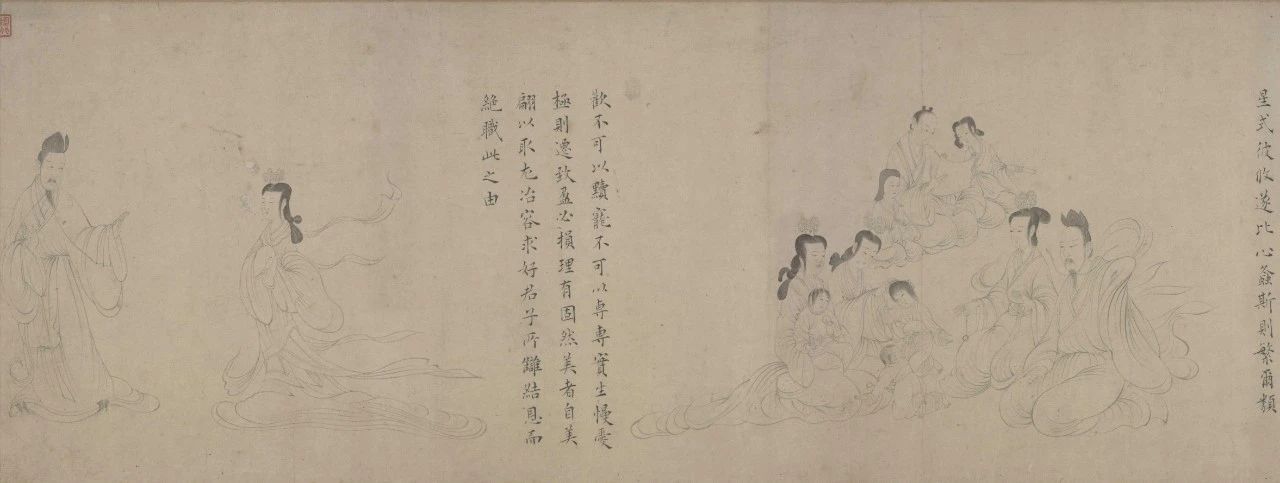 星式彼攸遂比心螽斯則繁爾類
歡不可以黷寵不可以專專實生慢愛
極則遷致盈必損理有固然美者自美
翩以取尤冶容求好君子所讎結恩而
絶職此之由